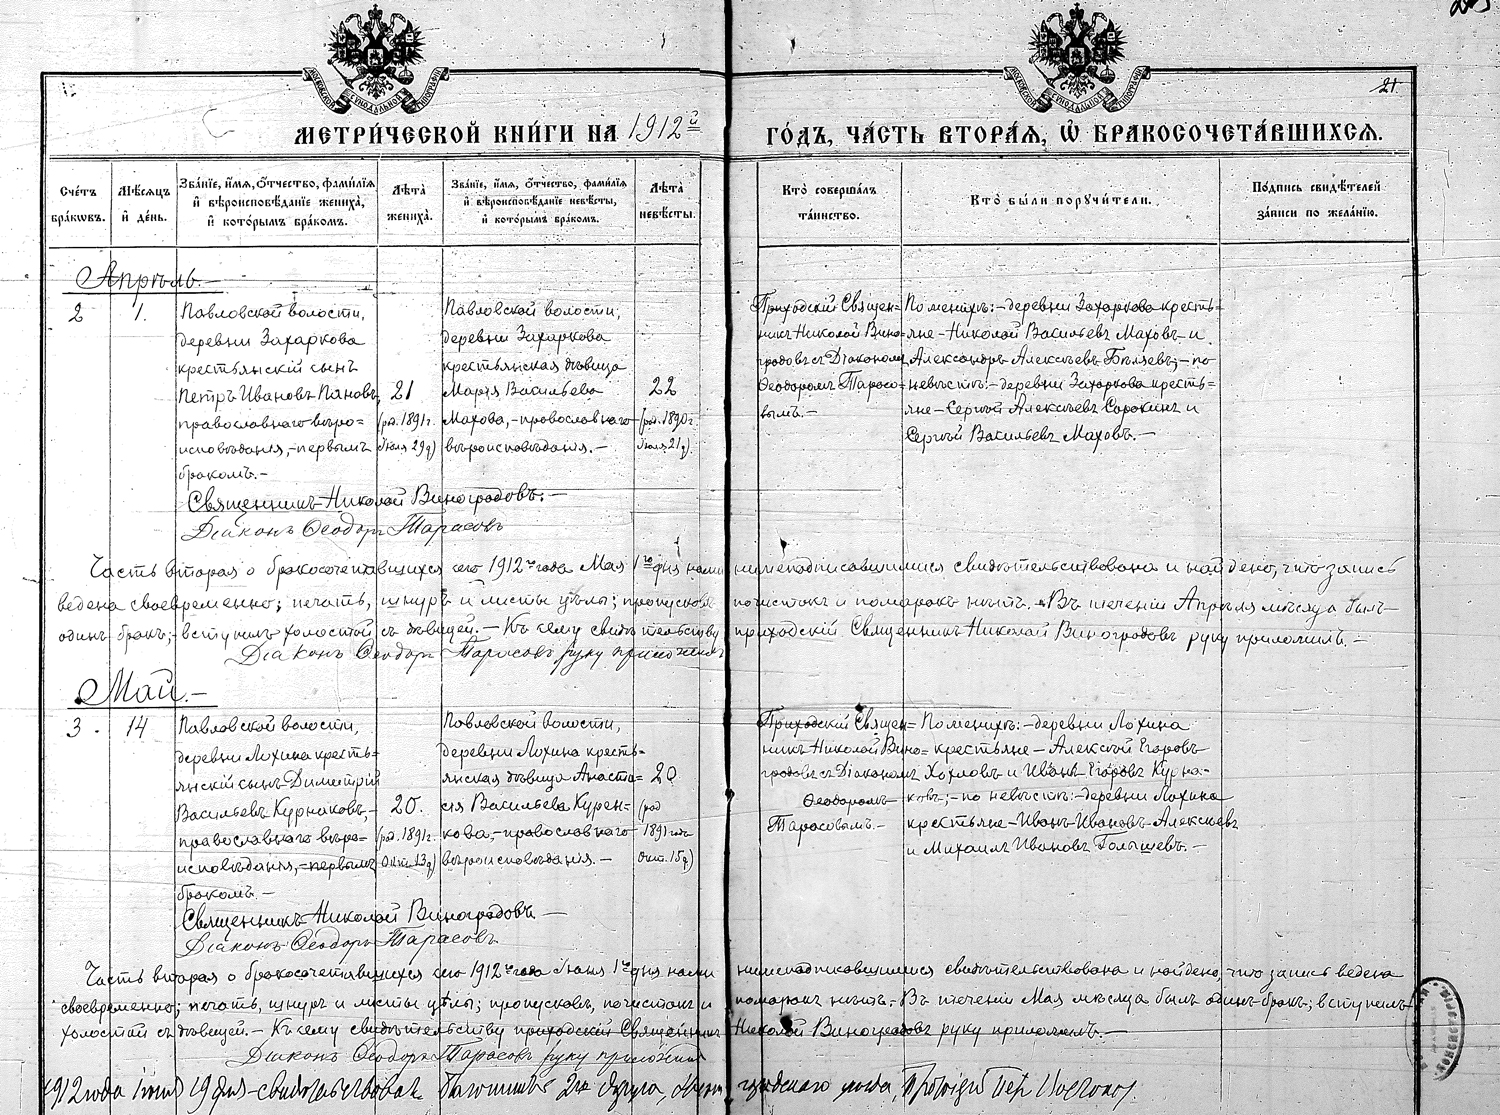 МЕТРИ́ЧЕСКОЙ КНИ́ГИ НА 1912й
ГО́ДЪ, ЧА́СТЬ ВТОРА́Я, Ѿ БРАКОСОЧЕТА́ВШИХСЯ.
21
Сче́тъ бра́ковъ.
Мѣ́сяцъ и́ де́нь.
Зва́нїе, и́мя, о́тчество, фами́лїя и́ вѣроисповѣ́данїе жениха̀, и́ кото́рымъ бра́комъ.
Лѣта̀ жениха̀.
Зва́нїе, и́мя, о́тчество, фами́лїя и́ вѣроисповѣ́данїе невѣ́сты, и́ кото́рымъ бра́комъ.
Лѣта̀ невѣ́сты.
Кто̀ соверша́лъ та́инство.
Кто̀ бы́ли поручи́тели.
По́дпись свидѣ́телей за́писи по жела́нїю.
Апрѣль.—
2
1.
Павловской волости,
деревни Захаркова
крестьянскій сынъ
Петръ Ивановъ Пяновъ,
православнаго вѣро=
исповѣданія,—первымъ
бракомъ.—
21
(род. 1891г.
Іюня 29д)
Павловской волости,
деревни Захаркова
крестьянская дѣвица
Марія Васильева
Махова,—православнаго
вѣроисповѣданія.—
22
(род. 1890г.
Іюля 21д).
Приходскій Священ=
никъ Николай Вино=
градовъ съ Діакономъ
Ѳеодоромъ Тарасо=
вымъ.—
По женихѣ:—деревни Захаркова кресть=
яне—Николай Васильевъ Маховъ—и
Александръ Алексѣевъ Бѣляевъ;—по
невѣстѣ:—деревни Захаркова кресть=
яне—Сергѣй Алексѣевъ Сорокинъ и
Сергѣй Васильевъ Маховъ.—
Священникъ Николай Виноградовъ.—
Діаконъ Ѳеодоръ Тарасовъ
Часть вторая о бракосочетавшихся сего 1912го года Мая 1го дня нами нижеподписавшимися свидѣтельствована и найдено, что запись
ведена своевременно; печать, шнуръ и листы цѣлы; пропусковъ, почистокъ и помарокъ нѣтъ.—Въ теченіи Апрѣля мѣсяца былъ
одинъ бракъ;—вступилъ холостой съ дѣвицей.—Къ сему свидѣтельству приходскій Священникъ Николай Виноградовъ руку приложилъ.—
Діаконъ Ѳеодоръ Тарасовъ руку приложилъ
Май.—
3.
14
Павловской волости,
деревни Лохина кресть=
янскій сынъ Димитрій
Васильевъ Курнаковъ,—
православнаго вѣро=
исповѣданія,—первымъ
бракомъ.—
20.
(род. 1891г.
Окт. 13д)
Павловской волости,
деревни Лохина кресть=
янская дѣвица Анаста=
сія Васильева Курен=
кова,—православнаго
вѣроисповѣданія.—
20
(род
1891 годъ
Окт. 15д)
Приходскій Священ=
никъ Николай Вино=
градовъ съ Діакономъ
Ѳеодоромъ
Тарасовымъ.—
По женихѣ:—деревни Лохина
крестьяне—Алексѣй Егоровъ
Хохловъ и Иванъ Егоровъ Курна=
ковъ;—по невѣстѣ:—деревни Лохина
крестьяне—Иванъ Ивановъ Алексѣевъ
и Михаилъ Ивановъ Голышевъ.—
Священникъ Николай Виноградовъ—
Діаконъ Ѳеодоръ Тарасовъ
Часть вторая о бракосочетавшихся сего 1912го года Іюня 1го дня нами нижеподписавшимися свидѣтельствована и найдено, что запись ведена
своевременно; печать, шнуръ и листы цѣлы; пропусковъ, почистокъ и помарокъ нѣтъ.—Въ теченіи Мая мѣсяца былъ одинъ бракъ; вступилъ
холостой съ дѣвицей.—Къ сему свидѣтельству приходскій Священникъ Николай Виноградовъ руку приложилъ.—
Діаконъ Ѳеодоръ Тарасовъ руку приложилъ
1912 года іюня 19 дня свидѣтельствовалъ Благочинный 2го округа, уѣзда,